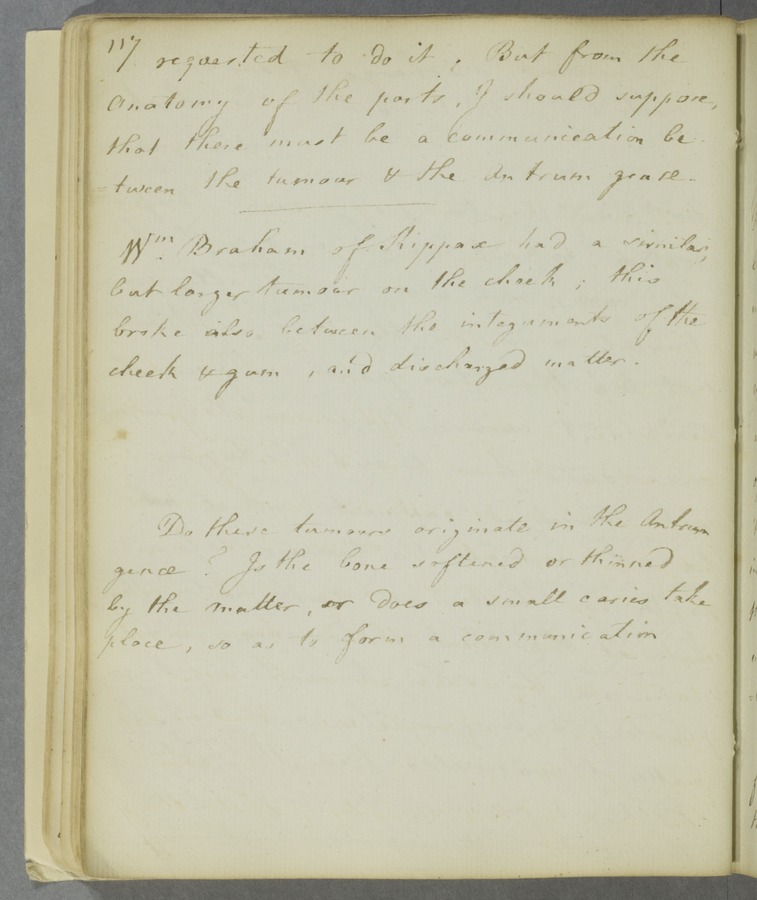 117
requested to do it. But from the
Anatomy of the parts, I should suppose,
that there must be a communication be-
=tween the tumour & the Antrum genæ.
Wm. Braham of Kippax had a similar,
but larger tumour on the cheek; this
broke also between the integuments of the
cheek & gum, and discharged matter.
Do these tumours originate in the Antrum
genæ? Is the bone softened or thinned
by the matter, or does a small caries take
place, so as to form a communication